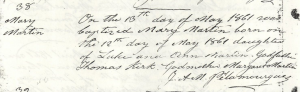 38
Mary
Martin
On the 13th day of May 1861 was
baptized Mary Martin born on
the 12th day of May 1861 daughter
of Luke and Ann Martin Godfather
Thomas Kirk Godmother Margaret Martin
J. A. M.